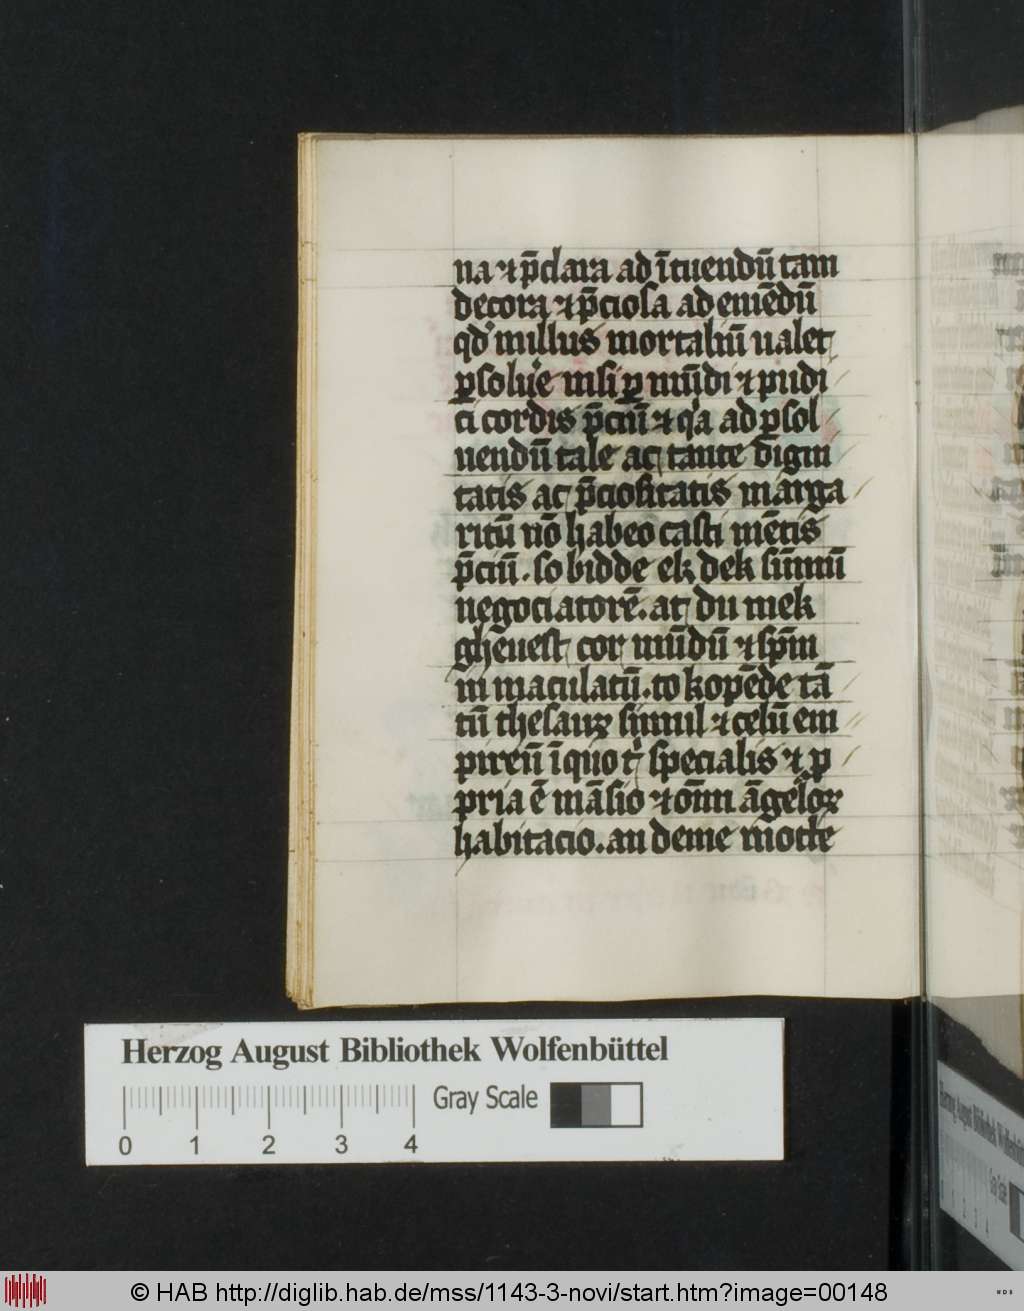 na ⁊ p̄clara ad ītuendū tam
decora ⁊ p̄ciosa ad emēdū
qd' nullus mortaliū ualet
ꝑsolue nisi ꝑ mūdi ⁊ pudi
ci cordis p̄ciū ⁊ q'a ad ꝑsol
uendū tale ac tante digni
tatis ac p̄ciositatis marga
ritū nō habeo casti mētis
p̄ciū. so bidde ek dek sūmū
negociatorē. at du mek
ghēuest cor mūdū ⁊ sp̄m
in maculatū. to kopēde tā
tū thesauꝝ simul ⁊ celū em
pireū ī quo t' specialis ⁊ ꝓ
pria ē māsio ⁊ om̄i āgeloꝝ
habitacio. an deme motte
Herzog August Bibliothek Wolfenbüttel
Gray Scale
0 1 2 3 4
© HAB http://diglib.hab.de/mss/1143-3-novi/start.htm?image=00148